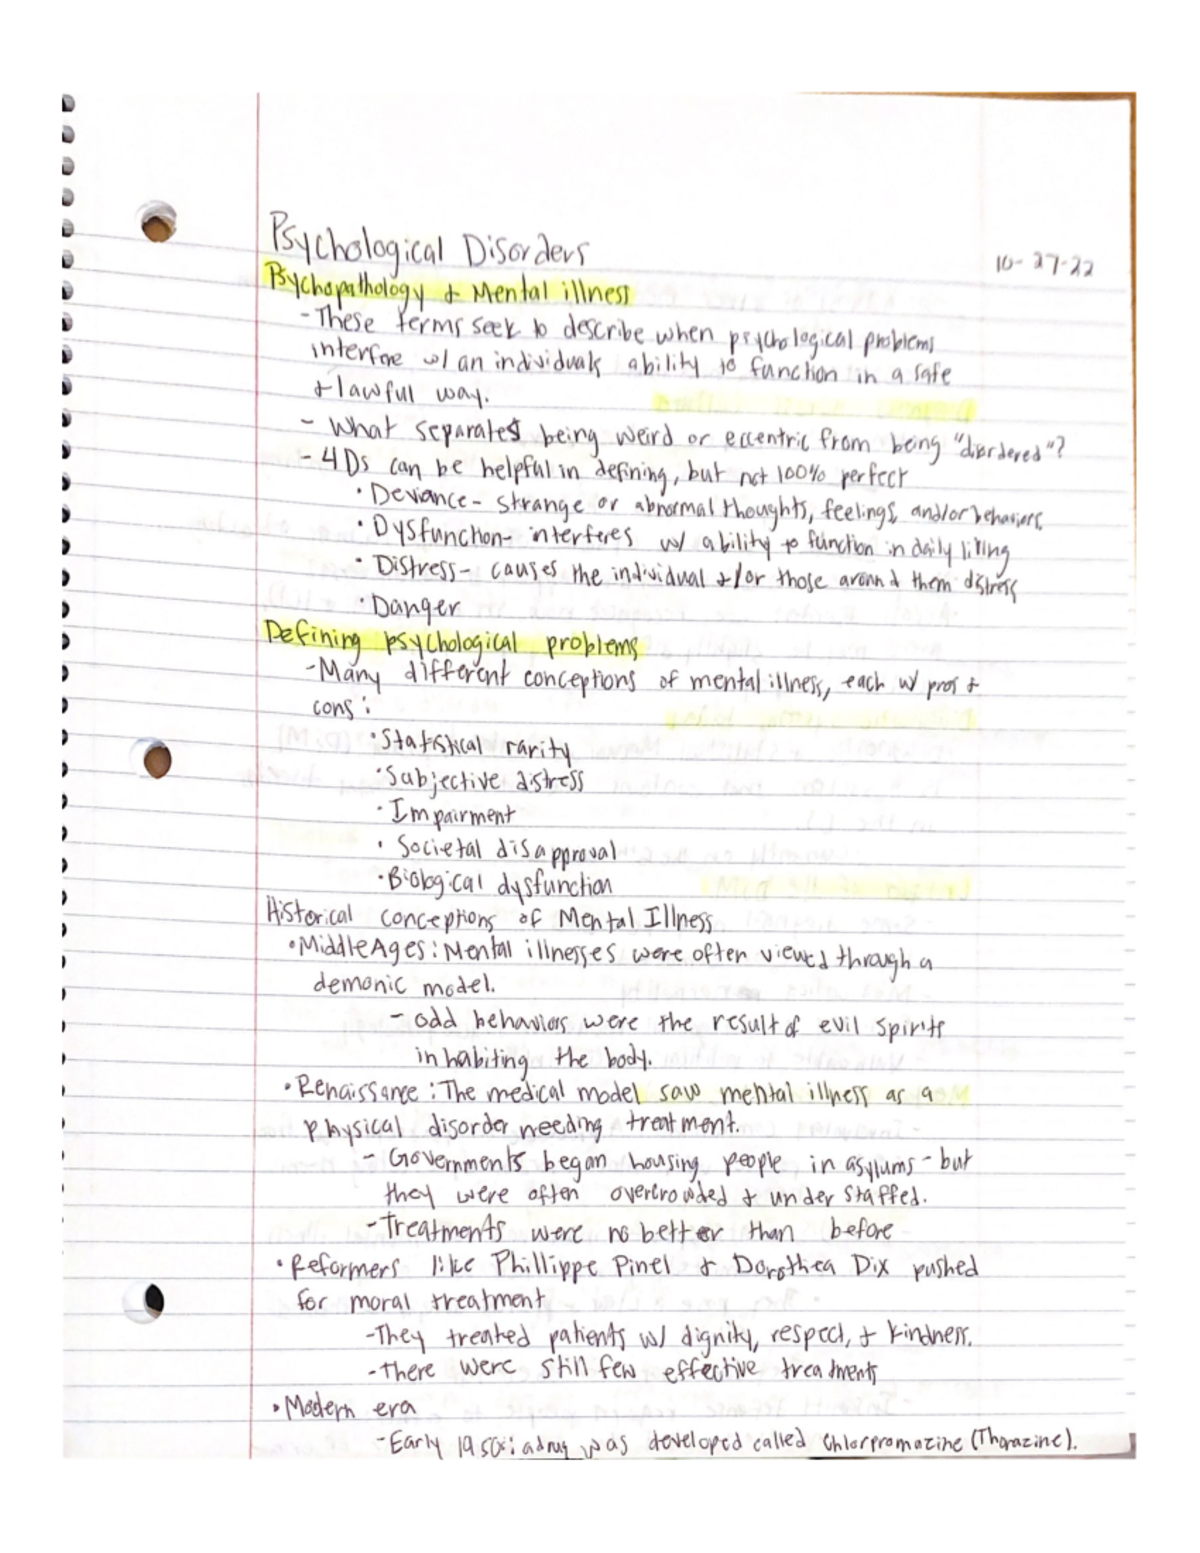 Psychological Disorders
10-27-22
Psychopathology & Mental illness
- These terms seek to describe when psychological problems
interfere w/ an individuals ability to function in a safe
& lawful way.
- What separates being weird or eccentric from being "disordered"?
- 4 Ds can be helpful in defining, but not 100% perfect
• Deviance - strange or abnormal thoughts, feelings, and/or behaviors.
• Dysfunction - interferes w/ ability to function in daily living
• Distress - causes the individual &/or those around them distress
• Danger
Defining psychological problems
- Many different conceptions of mental illness, each w/ pros &
cons:
• Statistical rarity
• Subjective distress
• Impairment
• Societal disapproval
• Biological dysfunction
Historical conceptions of Mental Illness
• Middle Ages: Mental illnesses were often viewed through a
demonic model.
- odd behaviors were the result of evil spirits
inhabiting the body.
• Renaissance: The medical model saw mental illness as a
physical disorder needing treatment.
- Governments began housing people in asylums - but
they were often overcrowded & understaffed.
- Treatments were no better than before
• Reformers like Phillippe Pinel & Dorothea Dix pushed
for moral treatment
- They treated patients w/ dignity, respect, & kindness.
- There were still few effective treatments
• Modern era
- Early 1950s: a drug was developed called Chlorpromazine (Thorazine).